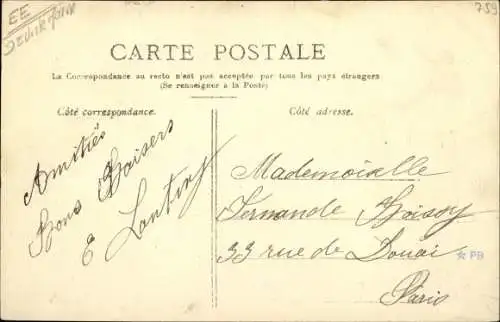 EE
759
CARTE POSTALE
La Correspondance au recto n'est pas acceptée par tous les pays étrangers
(Se renseigner à la Poste)
Côté correspondance.
Côté adresse.
Amitiés
Bons Baisers
E
Mademoiselle
Fernande
33 rue de Douai
Paris
PB